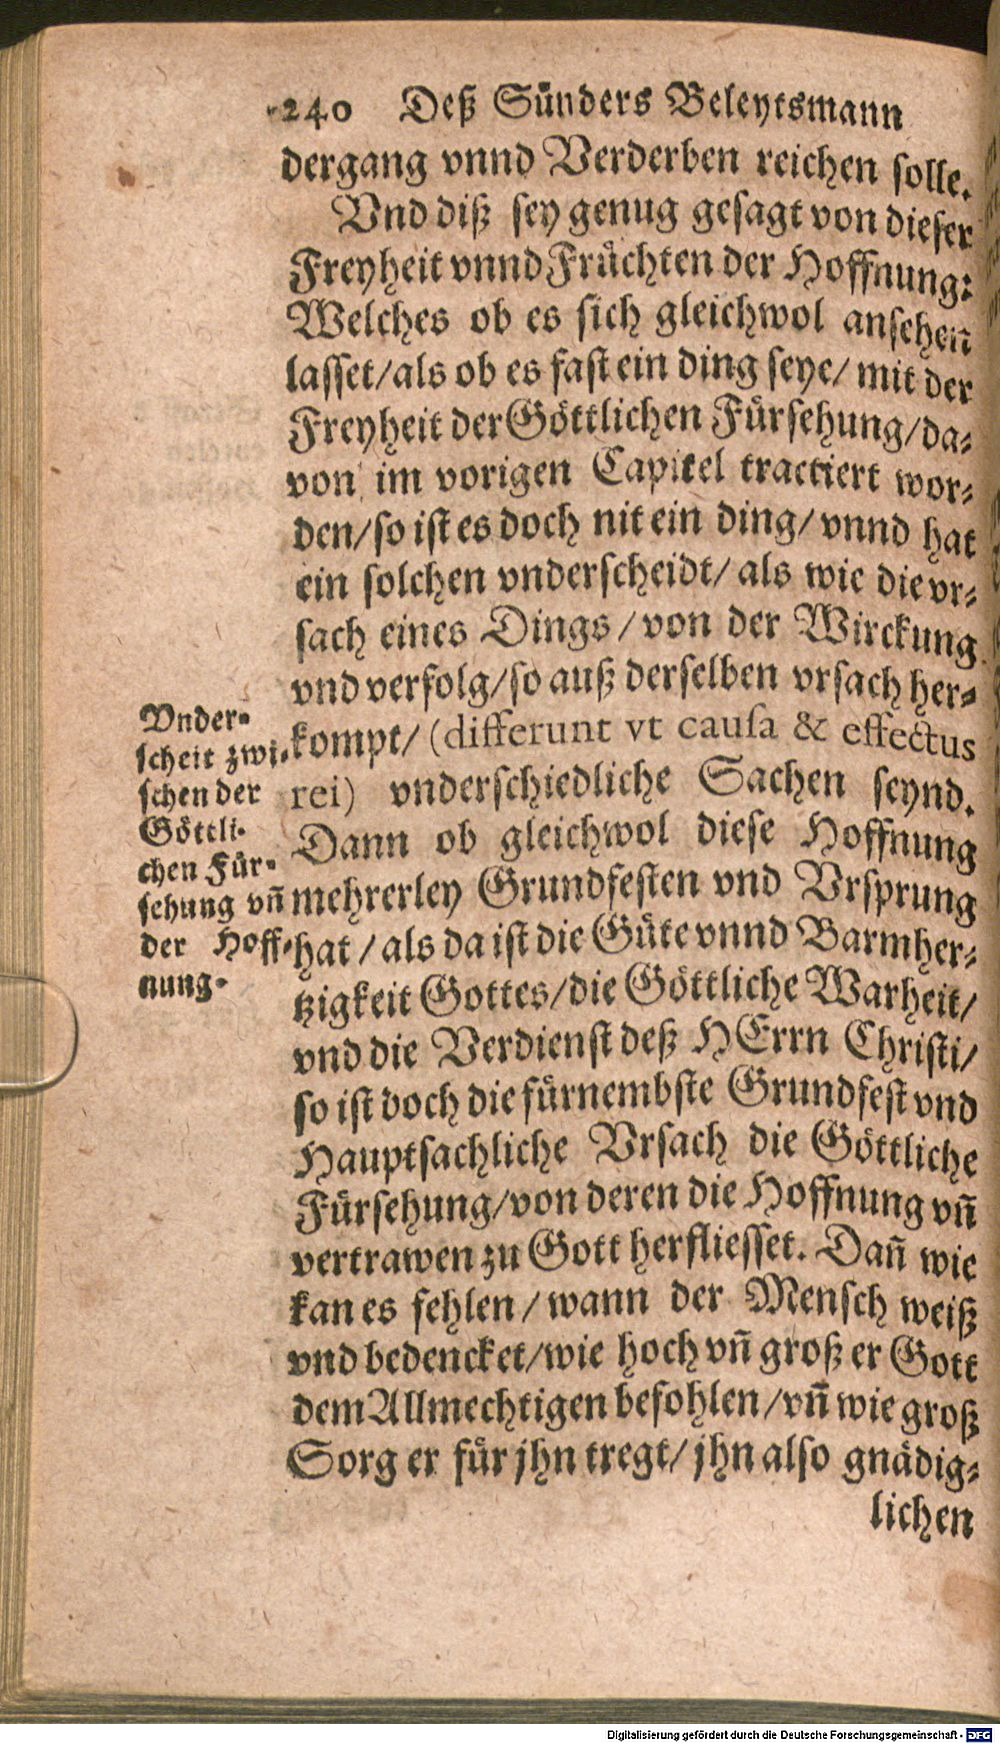 240 Deß Sünders Beleytsmann
dergang vnnd Verderben reichen solle.
Vnd diß sey genug gesagt von dieser
Freyheit vnnd Früchten der Hoffnung:
Welches ob es sich gleichwol ansehen
lasset/als ob es fast ein ding seye/ mit der
Freyheit der Göttlichen Fürsehung/da-
von im vorigen Capitel tractiert wor-
den/so ist es doch nit ein ding/ vnnd hat
ein solchen vnderscheidt/ als wie die vr-
sach eines Dings/von der Wirckung
vnd verfolg/so auß derselben vrsach her-
kompt/ (differunt vt causa & effectus
rei) vnderschiedliche Sachen seynd.
Dann ob gleichwol diese Hoffnung
mehrerley Grundfesten vnd Vrsprung
hat/als da ist die Güte vnnd Barmher-
tzigkeit Gottes/die Göttliche Warheit/
vnd die Verdienst deß HErrn Christi/
so ist doch die fürnembste Grundfest vnd
Hauptsachliche Vrsach die Göttliche
Fürsehung/von deren die Hoffnung vñ
vertrawen zu Gott herfliesset. Dañ wie
kan es fehlen/wann der Mensch weiß
vnd bedencket/wie hoch vñ groß er Gott
dem Allmechtigen befohlen/vñ wie groß
Sorg er für jhn tregt/ jhn also gnädig-
lichen
Vnder-
scheit zwi-
schen der
Göttli-
chen Für-
sehung vñ
der Hoff-
nung.
Digitalisierung gefördert durch die Deutsche Forschungsgemeinschaft - DFG